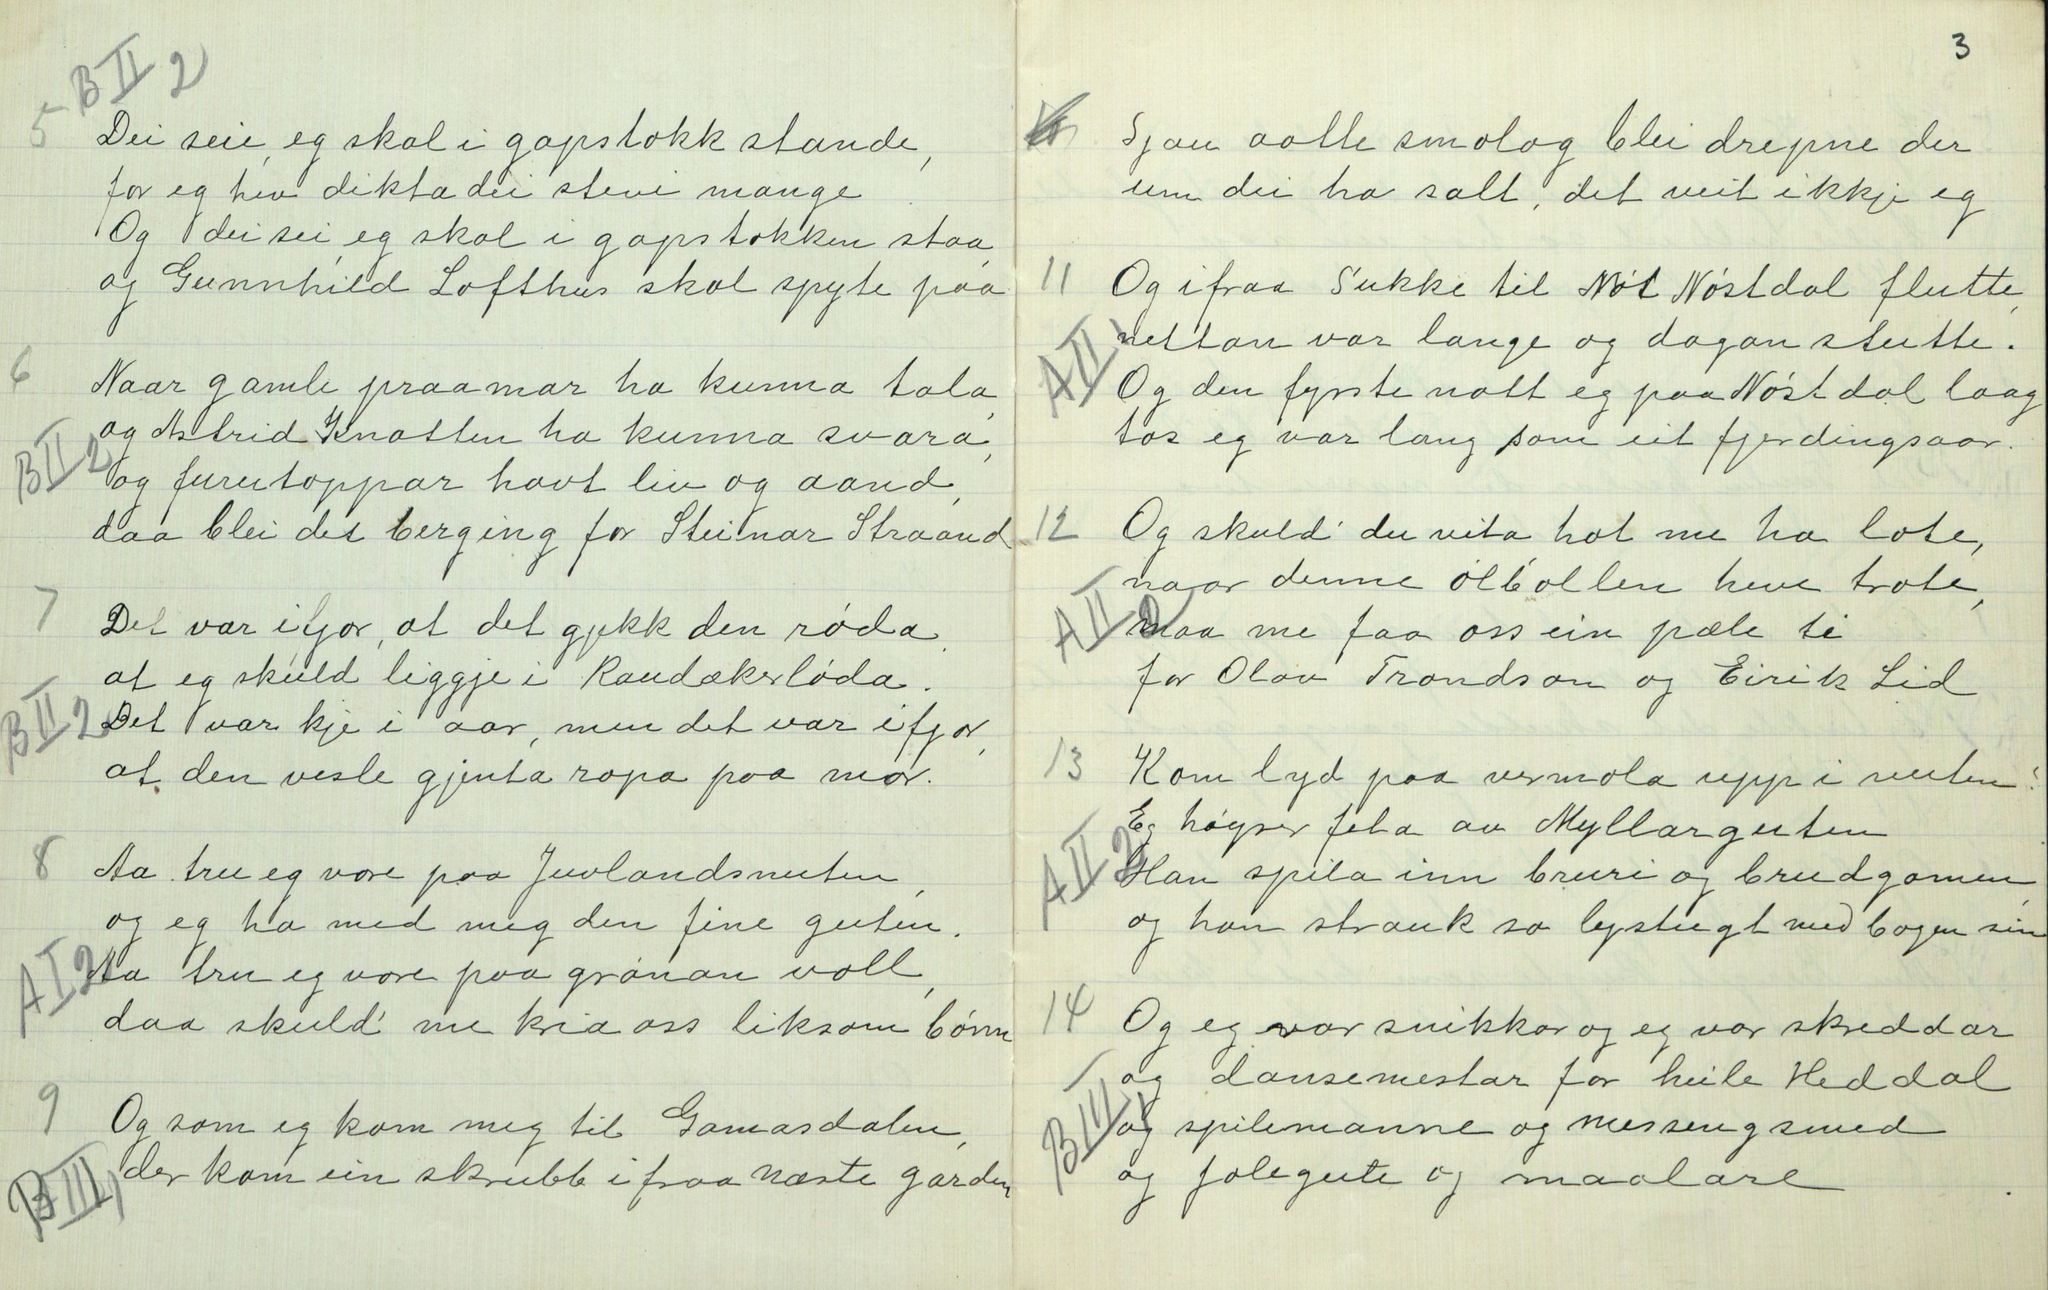 BII 2
5 Dei seie, eg skal i gapstokk stande,
for eg hev dikta dei stevi mange
Og dei sei, eg skal i gapstokken staa,
og Gunnhild Lofthus skal spyte paa
6 Naar gamle praamar ha kunna tala,
og Astrid Knatten ha kunna svara,
BII 2
og furutoppar havt liv og aand,
daa blei det berging for Steinar Straand
7 Det var ifjor, at det gjekk den røda,
at eg skuld liggje i Raudækerløda.
BII 2
Det var kje i aar, men det var ifjor,
at den vesle gjenta ropa paa mor.
8 Aa tru eg vore paa Juvlandsnuten,
og eg ha med meg den fine guten.
AI 2
Aa tru eg vore paa grønan voll,
daa skuld' me kria oss liksom bónn
9 Og som eg kom meg til Gamasdalen,
der kom ein skrubb ifraa næste garden
BIII 1
3
Sjau aatte smolog blei drepne der
um dei ha salt, det veit ikkje eg
11 Og ifraa Sukke til Nøt Nøstdal flutte,
nettan var lange og dagan stutte.
AII 1
Og den fyrste natt eg paa Nøstdal laag
tos eg var lang som eit fjerdingsaar.
12 Og skuld' du vita hot me ha late,
naar denne ølbollen heve trote,
AII 2
maa me faa oss ein pæle ti
for Olav Trondson og Eirik Lid
13 Kom lyd paa vermola upp i nuten!
Eg høyrer fela av Myllarguten
AII 2
Han spila inn bruri og brudgomen,
og han strauk so lystugt med bogen sin
14 Og eg var snikkar og eg var skreddar
og dansemestar for heile Heddal
BIII 1
og spilemanne og messengsmed
og jolegute og maalare